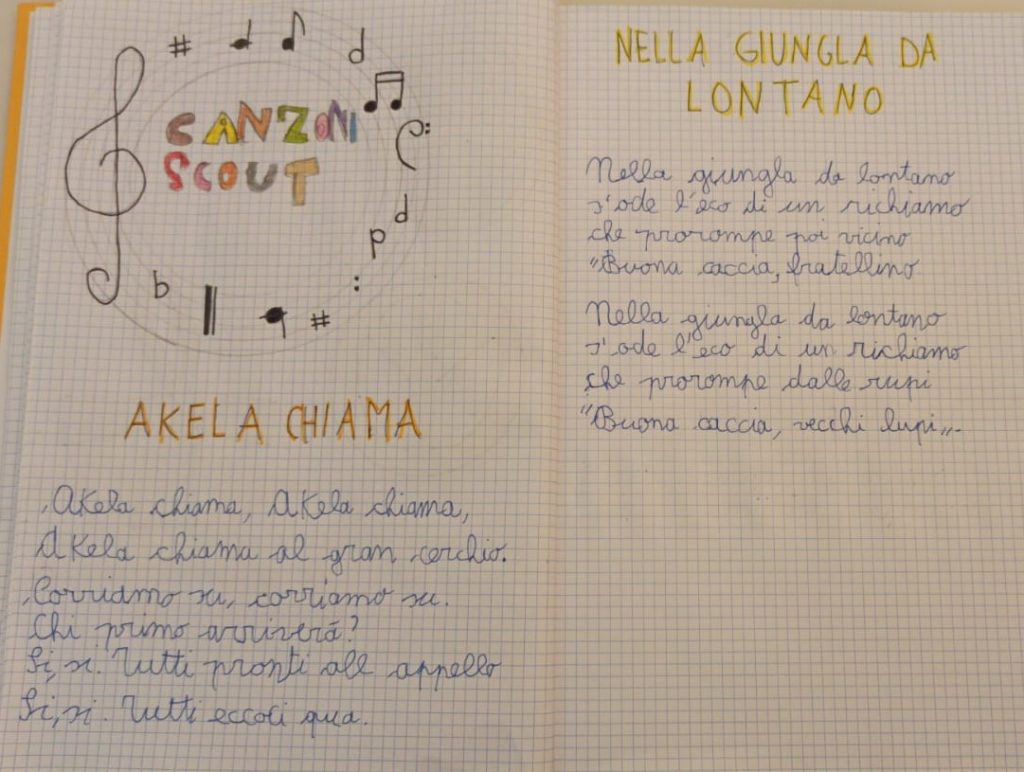 CANZONI
SCOUT
AKELA CHIAMA
Akela chiama, Akela chiama,
Akela chiama al gran cerchio.
Corriamo su, corriamo su.
Chi primo arriverá?
Si, si. Tutti pronti all appello
Si, si. Tutti eccoci qua.
NELLA GIUNGLA DA
LONTANO
Nella giungla da lontano
s'ode l'eco di un richiamo
che prorompe poi vicino
"Buona caccia, fratellino
Nella giungla da lontano
s'ode l'eco di un richiamo
che prorompe dalle rupi
"Buona caccia, vecchi lupi".